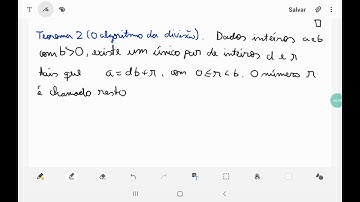 Salvar
Teorema 2 (O algoritmo da divisão). Dados inteiros a e b
com b>0, existe um único par de inteiros d e r
tais que a = db+r, com 0≤r<b. O número r
é chamado resto